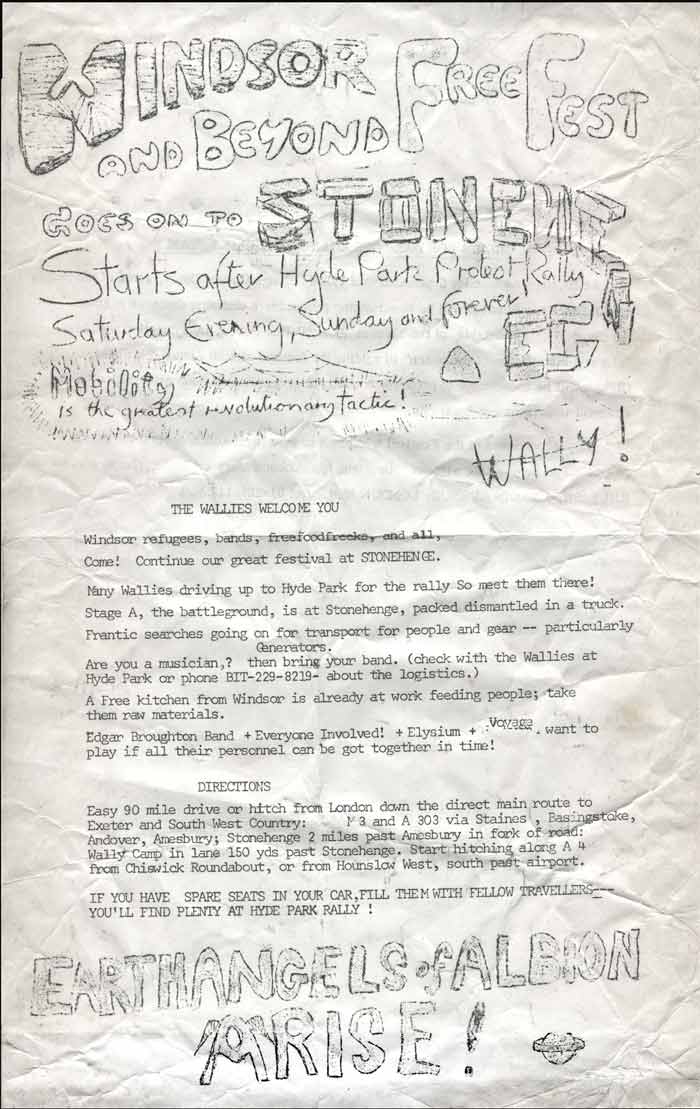 WINDSOR FREE FEST
AND BEYOND
GOES ON TO STONEHENGE
Starts after Hyde Park Protest Rally
Saturday Evening, Sunday and forever
Mobility
is the greatest revolutionary tactic!
WALLY!
THE WALLIES WELCOME YOU
Windsor refugees, bands, freefoodfreeks, and all,
Come! Continue our great festival at STONEHENGE.
Many Wallies driving up to Hyde Park for the rally So meet them there!
Stage A, the battleground, is at Stonehenge, packed dismantled in a truck.
Frantic searches going on for transport for people and gear -- particularly
Generators.
Are you a musician,? then bring your band. (check with the Wallies at
Hyde Park or phone BIT-229-8219- about the logistics.)
A Free kitchen from Windsor is already at work feeding people; take
them raw materials.
Edgar Broughton Band + Everyone Involved! + Elysium + Voyage. want to
play if all their personnel can be got together in time!
DIRECTIONS
Easy 90 mile drive or hitch from London down the direct main route to
Exeter and South West Country: M3 and A 303 via Staines , Basingstoke,
Andover, Amesbury; Stonehenge 2 miles past Amesbury in fork of road:
Wally Camp in lane 150 yds past Stonehenge. Start hitching along A 4
from Chiswick Roundabout, or from Hounslow West, south past airport.
IF YOU HAVE SPARE SEATS IN YOUR CAR,FILL THEM WITH FELLOW TRAVELLERS---
YOU'LL FIND PLENTY AT HYDE PARK RALLY !
EARTHANGELS of ALBION
ARISE!